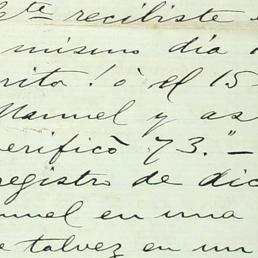 recibiste
mismo dia
rito! ò el 15
Manuel y as
verificò 73."—
registro de dic
nuel en una
talvez en un